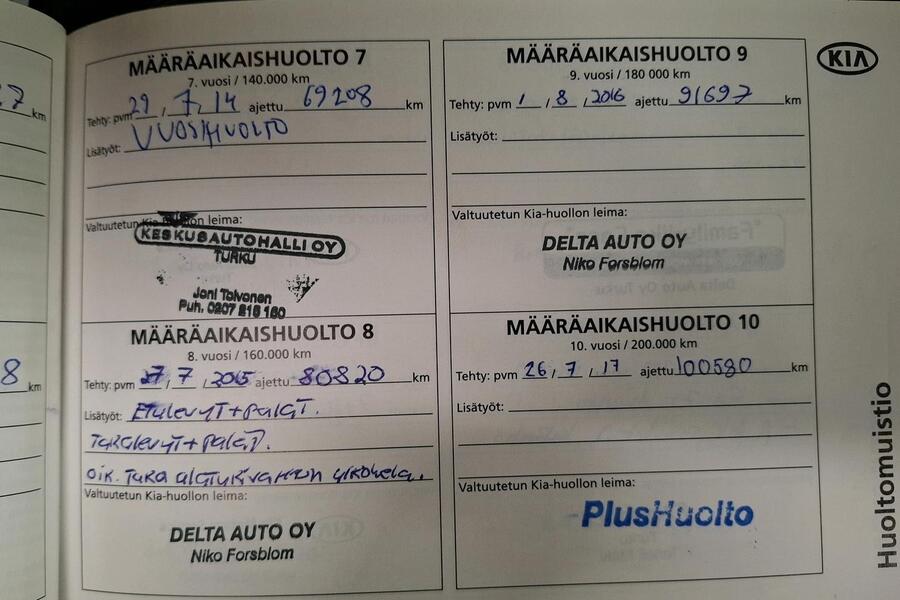 7 km
8 km
MÄÄRÄAIKAISHUOLTO 7
7. vuosi / 140.000 km
Tehty: pvm 29, 7, 14 ajettu 69208 km
Lisätyöt: VUOSIHUOLTO
Valtuutetun Kia-huollon leima:
KESKUSAUTOHALLI OY
TURKU
Joni Toivonen
Puh. 0207 216 160
MÄÄRÄAIKAISHUOLTO 8
8. vuosi / 160.000 km
Tehty: pvm 27, 7, 2015 ajettu 80820 km
Lisätyöt: Etulevyt + palat.
Takalevyt + palat.
oik. taka alatukivarren ulkohela.
Valtuutetun Kia-huollon leima:
DELTA AUTO OY
Niko Forsblom
MÄÄRÄAIKAISHUOLTO 9
9. vuosi / 180 000 km
Tehty: pvm 1, 8, 2016 ajettu 91697 km
Lisätyöt:
Valtuutetun Kia-huollon leima:
DELTA AUTO OY
Niko Forsblom
MÄÄRÄAIKAISHUOLTO 10
10. vuosi / 200.000 km
Tehty: pvm 26, 7, 17 ajettu 100580 km
Lisätyöt:
Valtuutetun Kia-huollon leima:
PlusHuolto
KIA
Huoltomuistio